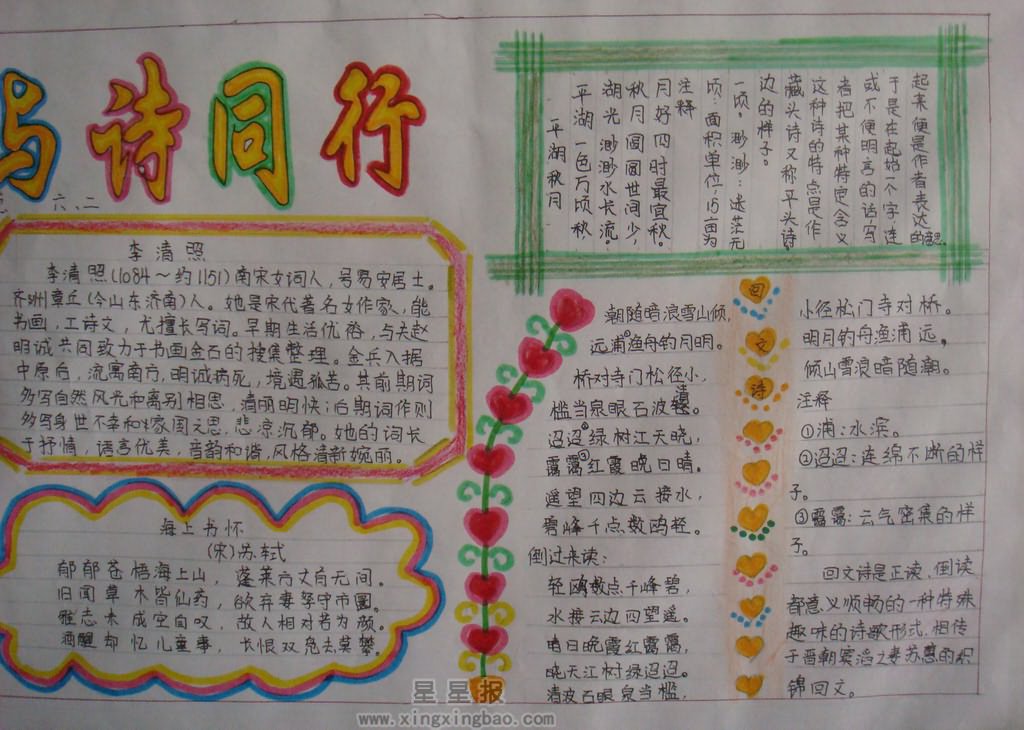 与诗同行
六、二
李清照
李清照(1084～约1151)南宋女词人，号易安居士。
齐州章丘(今山东济南)人。她是宋代著名女作家，能
书画，工诗文，尤擅长写词。早期生活优裕，与夫赵
明诚共同致力于书画金石的搜集整理。金兵入据
中原后，流寓南方，明诚病死，境遇孤苦。其前期词
多写自然风光和离别相思，清丽明快；后期词作则
多写身世不幸和家国之思，悲凉沉郁。她的词长
于抒情，语言优美，音韵和谐，风格清新婉丽。
海上书怀
(宋)苏轼
郁郁苍梧海上山，蓬莱方丈有无间。
旧闻草木皆仙药，欲弃妻孥守市圜。
雅志未成空自叹，故人相对若为颜。
酒醒却忆儿童事，长恨双凫去莫攀。
起来便是作者表达的意思。
于是在起始一个字连
或不便明言的话，写
者把某种特定含义
这种诗的特点是作
藏头诗又称平头诗
边的样子。
一顷。渺渺：迷茫无
顷：面积单位，15亩为
注释
月好四时最宜秋。
秋月圆圆世间少，
湖光渺渺水长流。
平湖一色万顷秋
平湖秋月
朝随暗浪雪山倾，
远浦①渔舟钓月明。
桥对寺门松径小，
槛当泉眼石波清。
迢迢②绿树江天晓，
霭霭③红霞晚日晴。
遥望四边云接水，
碧峰千点数鸥轻。
倒过来读：
轻鸥数点千峰碧，
水接云边四望遥。
晴日晚霞红霭霭，
晓天江树绿迢迢。
清波石眼泉当槛，
回
文
诗
小径松门寺对桥。
明月钓舟渔浦远，
倾山雪浪暗随潮。
注释
①浦：水滨。
②迢迢：连绵不断的样
子。
③霭霭：云气密集的样
子。
回文诗是正读、倒读
都意义顺畅的一种特殊
趣味的诗歌形式，相传
于晋朝窦滔之妻苏蕙的织
锦回文。
星星报
www.xingxingbao.com